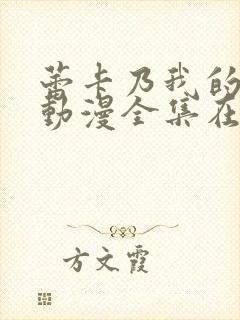 蕾卡乃我的
動漫全集在
方文霞